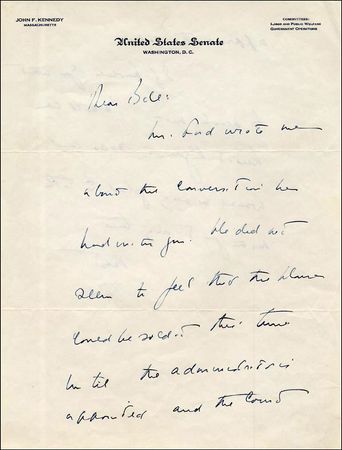 JOHN F. KENNEDY
MASSACHUSETTS
COMMITTEES:
LABOR AND PUBLIC WELFARE
GOVERNMENT OPERATIONS
United States Senate
WASHINGTON, D. C.
Dear Bill:
Mr. Ford wrote me
about the conversation he
had with you. He did not
seem to feel that the
could be sold at this time
until the administrator is
appointed and the Court